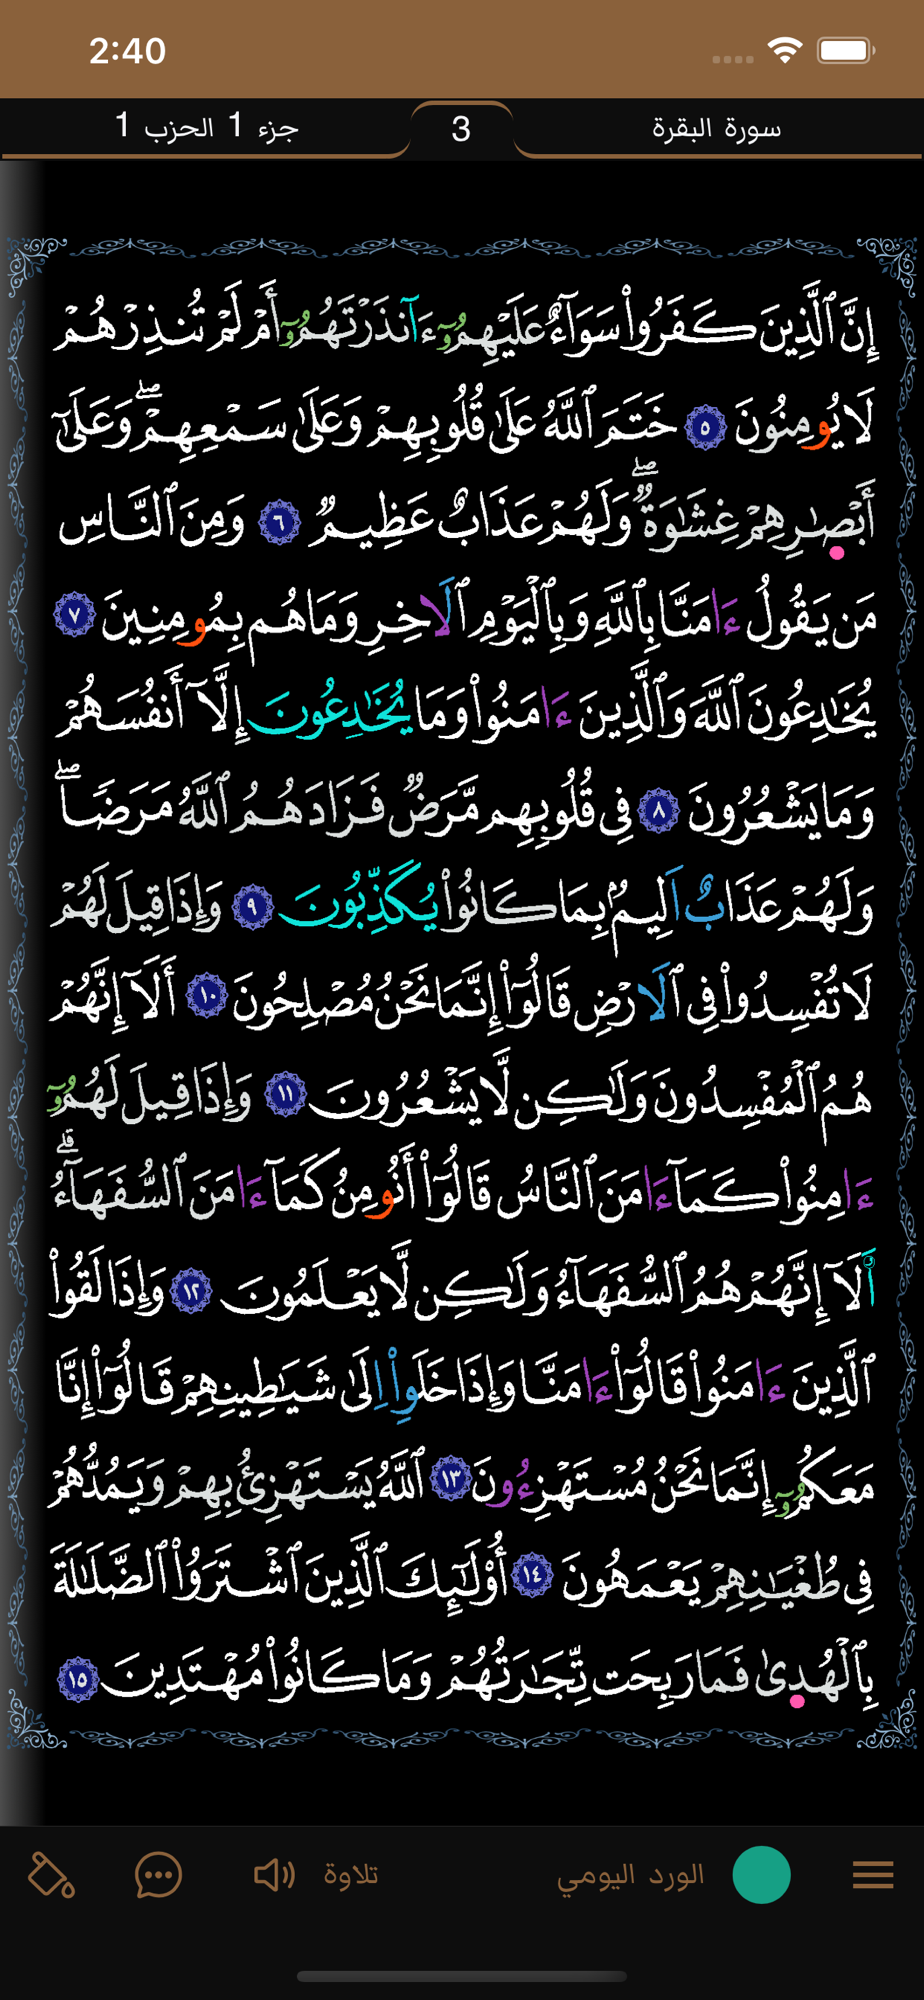 2:40
سورة البقرة
3
جزء 1 الحزب 1
إِنَّ ٱلَّذِينَ كَفَرُواْ سَوَآءٌ عَلَيْهِمُۥٓ ءَآنذَرْتَهُمُۥٓ أَمْ لَمْ تُنذِرْهُمْ
لَا يُومِنُونَ ٥ خَتَمَ ٱللَّهُ عَلَىٰ قُلُوبِهِمْ وَعَلَىٰ سَمْعِهِمْۖ وَعَلَىٰٓ
أَبْصَٰرِهِمْ غِشَٰوَةٌۖ وَلَهُمْ عَذَابٌ عَظِيمٌ ٦ وَمِنَ ٱلنَّاسِ
مَن يَقُولُ ءَامَنَّا بِٱللَّهِ وَبِٱلْيَوْمِ ٱلَاخِرِ وَمَا هُم بِمُومِنِينَ ٧
يُخَٰدِعُونَ ٱللَّهَ وَٱلَّذِينَ ءَامَنُواْ وَمَا يُخَٰدِعُونَ إِلَّآ أَنفُسَهُمْ
وَمَا يَشْعُرُونَ ٨ فِى قُلُوبِهِم مَّرَضٌ فَزَادَهُمُ ٱللَّهُ مَرَضًاۖ
وَلَهُمْ عَذَابٌ اَلِيمٌۢ بِمَا كَانُواْ يُكَذِّبُونَ ٩ وَإِذَا قِيلَ لَهُمْ
لَا تُفْسِدُواْ فِى ٱلَارْضِ قَالُوٓاْ إِنَّمَا نَحْنُ مُصْلِحُونَ ١٠ أَلَآ إِنَّهُمْ
هُمُ ٱلْمُفْسِدُونَ وَلَٰكِن لَّا يَشْعُرُونَ ١١ وَإِذَا قِيلَ لَهُمُۥٓ
ءَامِنُواْ كَمَآ ءَامَنَ ٱلنَّاسُ قَالُوٓاْ أَنُومِنُ كَمَآ ءَامَنَ ٱلسُّفَهَآءُۗ
أَلَآ إِنَّهُمْ هُمُ ٱلسُّفَهَآءُ وَلَٰكِن لَّا يَعْلَمُونَ ١٢ وَإِذَا لَقُواْ
ٱلَّذِينَ ءَامَنُواْ قَالُوٓاْ ءَامَنَّا وَإِذَا خَلَوِاْ اِلَىٰ شَيَٰطِينِهِمْ قَالُوٓاْ إِنَّا
مَعَكُمُۥٓ إِنَّمَا نَحْنُ مُسْتَهْزِءُونَ ١٣ ٱللَّهُ يَسْتَهْزِئُ بِهِمْ وَيَمُدُّهُمْ
فِى طُغْيَٰنِهِمْ يَعْمَهُونَ ١٤ أُوْلَٰٓئِكَ ٱلَّذِينَ ٱشْتَرَوُاْ ٱلضَّلَٰلَةَ
بِٱلْهُدىٰ فَمَا رَبِحَت تِّجَٰرَتُهُمْ وَمَا كَانُواْ مُهْتَدِينَ ١٥
الورد اليومي
تلاوة